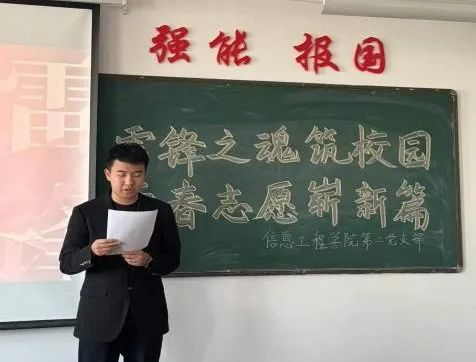 强能 报国
雷
雷锋之魂筑校园
春志愿崭新篇
信息工程学院第二党支部